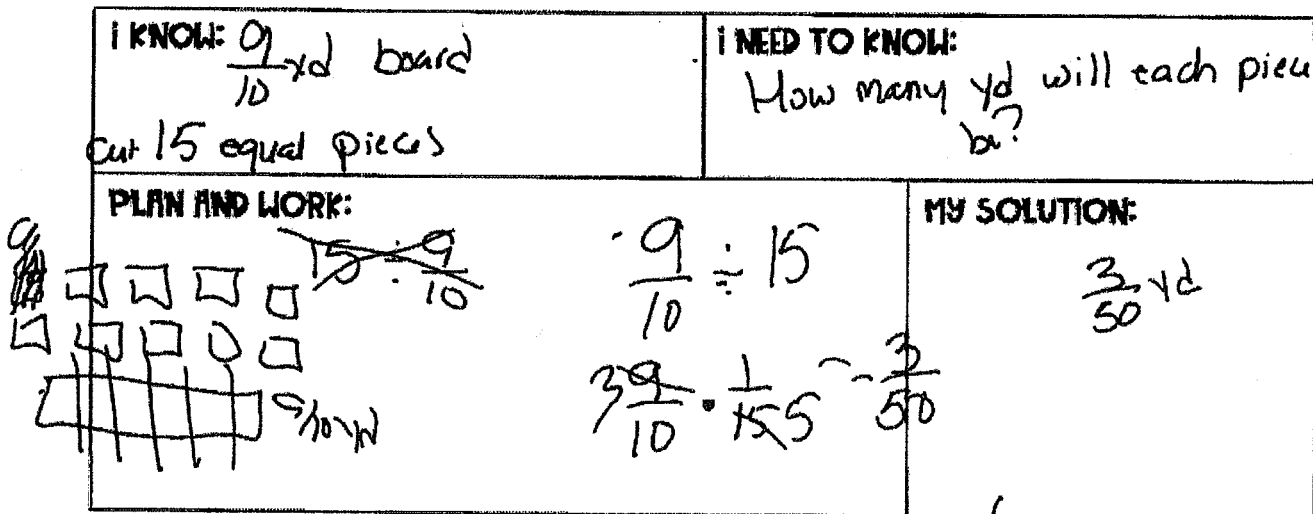 I KNOW: 9/10 yd board
cut 15 equal pieces
I NEED TO KNOW:
How many yd will each piece
be?
PLAN AND WORK:
15 ÷ 9/10
9/10 ÷ 15
3 9/10 • 1/15 5 = 3/50
9/10 yd
MY SOLUTION:
3/50 yd